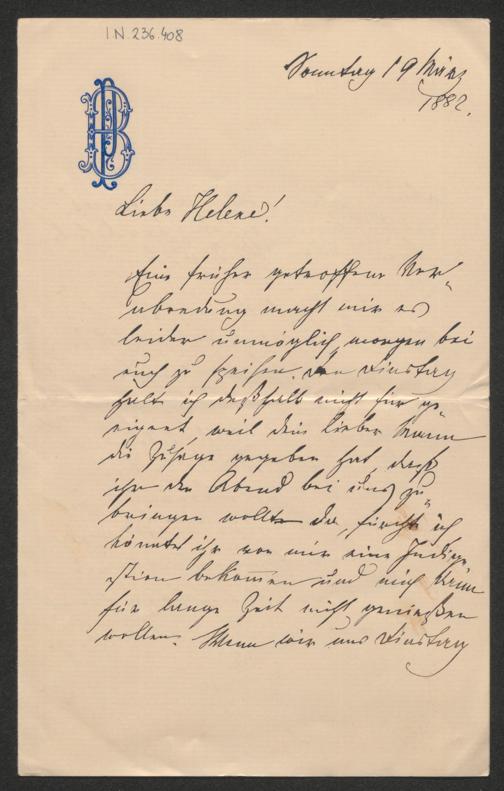 I.N. 236.408
Sonntag 19 März
1882.
PB
Liebe Helene!
Eine früher getroffene Ver-
abredung macht mir es
leider unmöglich, morgen bei
euch zu speisen. Den Dinstag
halte ich deßhalb nicht für ge-
eignet, weil dein lieber Mann
die Zusage gegeben hat, daß
ihr den Abend bei uns zu-
bringen wollt. Da, fürchte ich
könntet ihr von mir eine Indige-
stion bekommen und mich
für lange Zeit nicht genießen
wollen. Wenn wir uns Dinstag